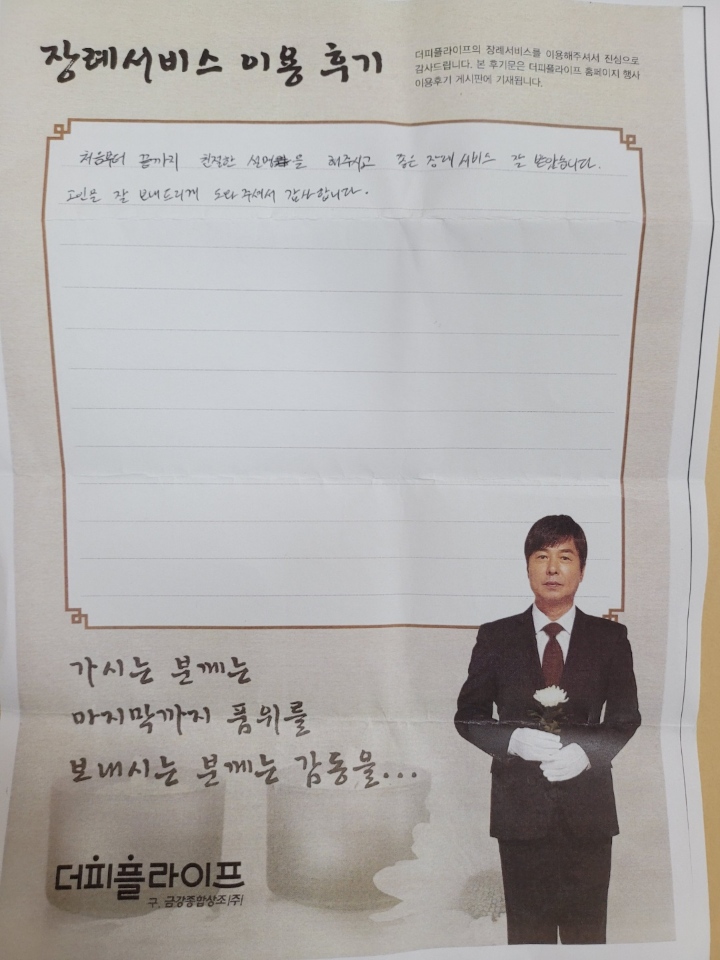 장례서비스 이용 후기
더피플라이프의 장례서비스를 이용해주셔서 진심으로
감사드립니다. 본 후기문은 더피플라이프 홈페이지 행사
이용후기 게시판에 기재됩니다.
처음부터 끝까지 친절한 설명을 해주시고 좋은 장례 서비스 잘 받았습니다.
고인을 잘 보내드리게 도와 주셔서 감사합니다.
가시는 분께는
마지막까지 품위를
보내시는 분께는 감동을...
더피플라이프
구. 금강종합상조(주)